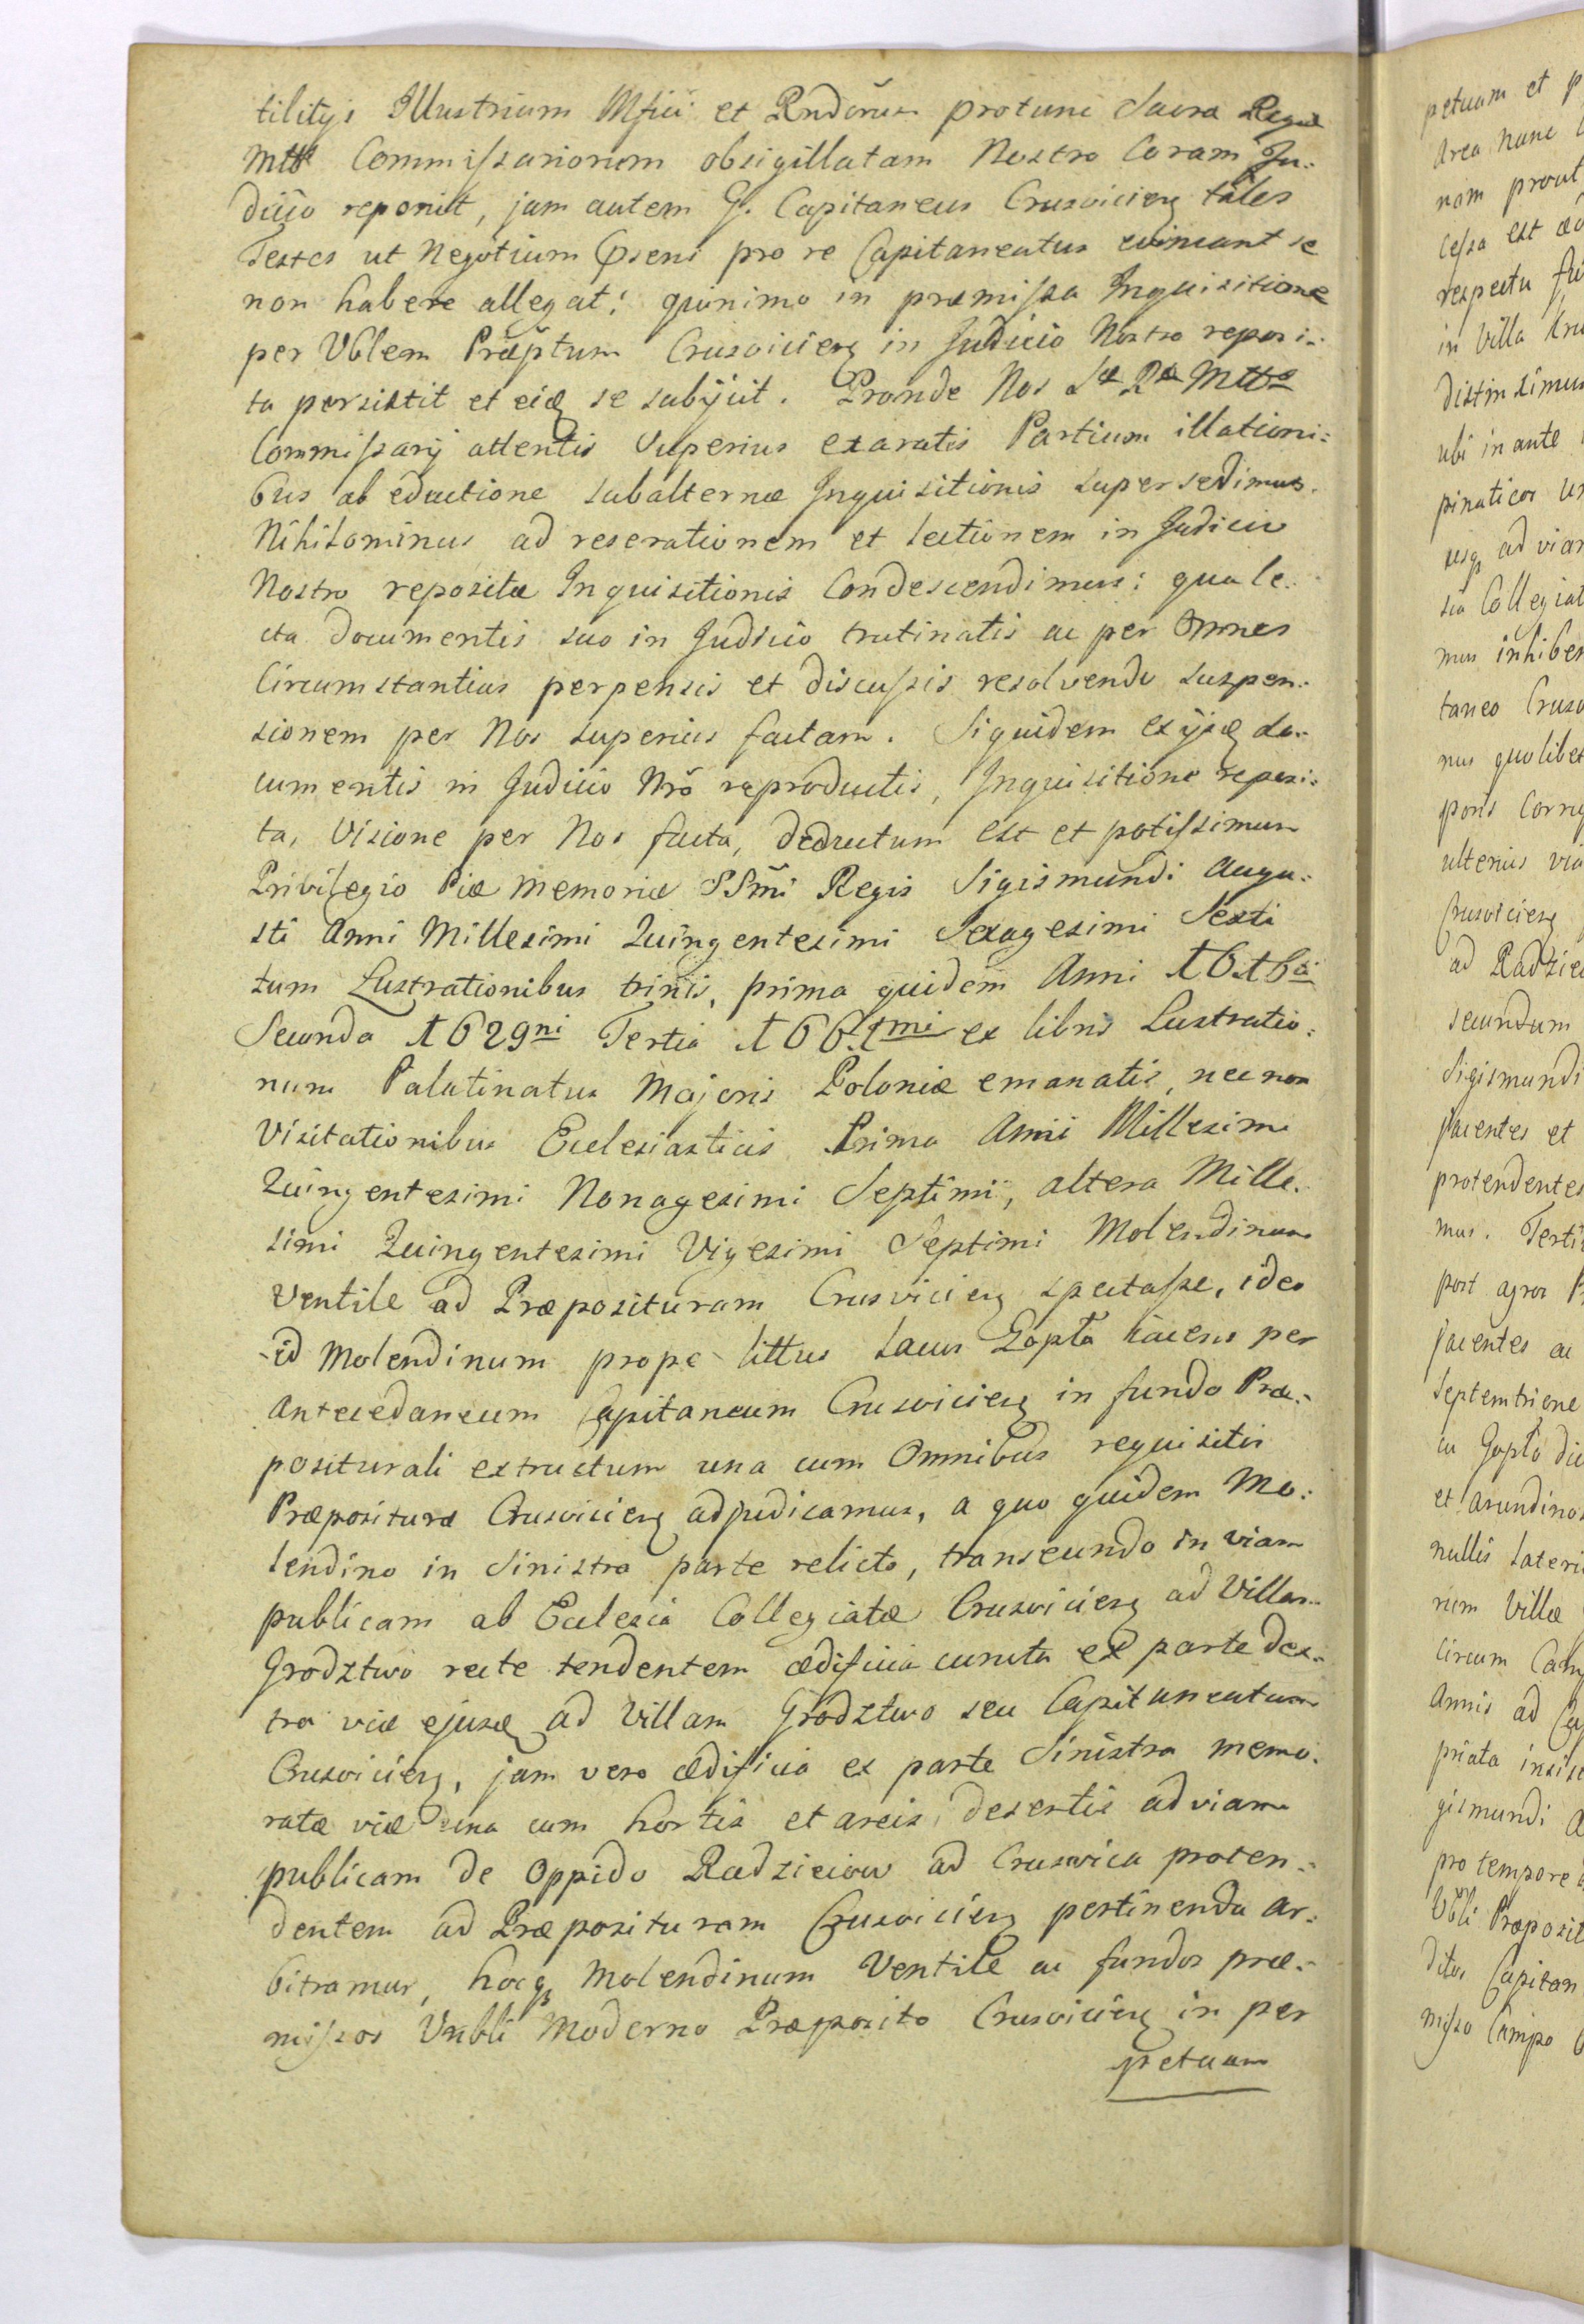 tilitys Illustrium Mfici et Rndorum protunc Sacra Regiæ
Mttis Commissariorum obsigillatam Nostro Coram Ju:
dicio reponit, jam autem G. Capitaneus Crusvicien tales
Testes ut Negotium Præsens pro re Capitaneatus evincant se
non habere allegat: quinimo in præmissa Inquisitione
per Vblem Præptum Crusvicien in Judicio Nostro reposi:
ta persistit et eidq se subijcit. Proinde Nos Sæ Ræ Mttis
Commissarij attentis Superius exaratis Partium illationi:
bus ab eductione subalternæ Inquisitionis supersedimus.
Nihilominus ad reserationem et lectionem in Judicio
Nostro repositæ Inquisitionis Condescendimus: qua le:
cta documentis suo in Judicio trutinatis ac per Omnes
Circumstantias perpensis et discussis resolvendo suspen:
sionem per Nos superius factam. Siquidem ex ijsdq do:
cumentis in Judicio Nrō reproductis, Inquisitione reposi:
ta, Visione per Nos facta, deductum est et potissimum
Privilegio Piæ memoriæ SSmi Regis Sigismundi Augu:
sti Anni Millesimi Quingentesimi Sexagesimi Sexti
tum Lustrationibus trinis, prima quidem Anni 1616ti
Secunda 1629ni Tertia 1661mi ex libris Lustratio:
num Palatinatus Majoris Poloniæ emanatis, nec non
Visitationibus Ecclesiasticis Prima Anni Millesimi
Quingentesimi Nonagesimi Septimi, altera Mille:
simi Quingentesimi Vigesimi Septimi Molendinum
Ventile ad Præposituram Crusvicien spectasse, ideo
id Molendinum prope littus Lacus Gopło iacens per
Antecedaneum Capitaneum Crusvicien in fundo Præ:
positurali extructum una cum Omnibus requisitis
Præposituræ Crusvicien adjudicamus, a quo quidem Mo:
lendino in Sinistra parte relicto, transeundo in viam
publicam ab Ecclesia Collegiatæ Crusvicien ad Villam
Grodztwo recte tendentem ædificia cuncta ex parte dex:
tra viæ ejusdq ad Villam Grodztwo seu Capitaneatum
Crusvicien, jam vero ædificia ex parte Sinistra memo:
ratæ viæ una cum hortis et areis desertis ad viam
publicam de Oppido Radzieiow ad Crusvica proten:
dentem ad Præposituram Crusvicien pertinenda ar:
bitramur, hocq Molendinum Ventile ac fundos præ:
missos Vnbli Moderno Præposito Crusvicien in per
petuam
petuam et p
Area nunc
nam prout
cessa est
respectu
in Villa Kru
distinximus
ubi in ante
pinaticos
usq ad viam
sia Collegiat
mus inhiben
taneo Crusv
nus quolibet
ponis
ulterius via
Crusvicien
ad Radzie
secundum
Sigismundi
jacentes et
protendentes
mus. Tertio
post agros P
jacentes ac
Septemtrione
cu Gopło dic
et arundino
nullis lateri
rum Villæ
Circum Cam
Annis ad Ca
priata insi
gismundi A
pro tempore
Vbli Præposit
ditos Capitan
misso Campo